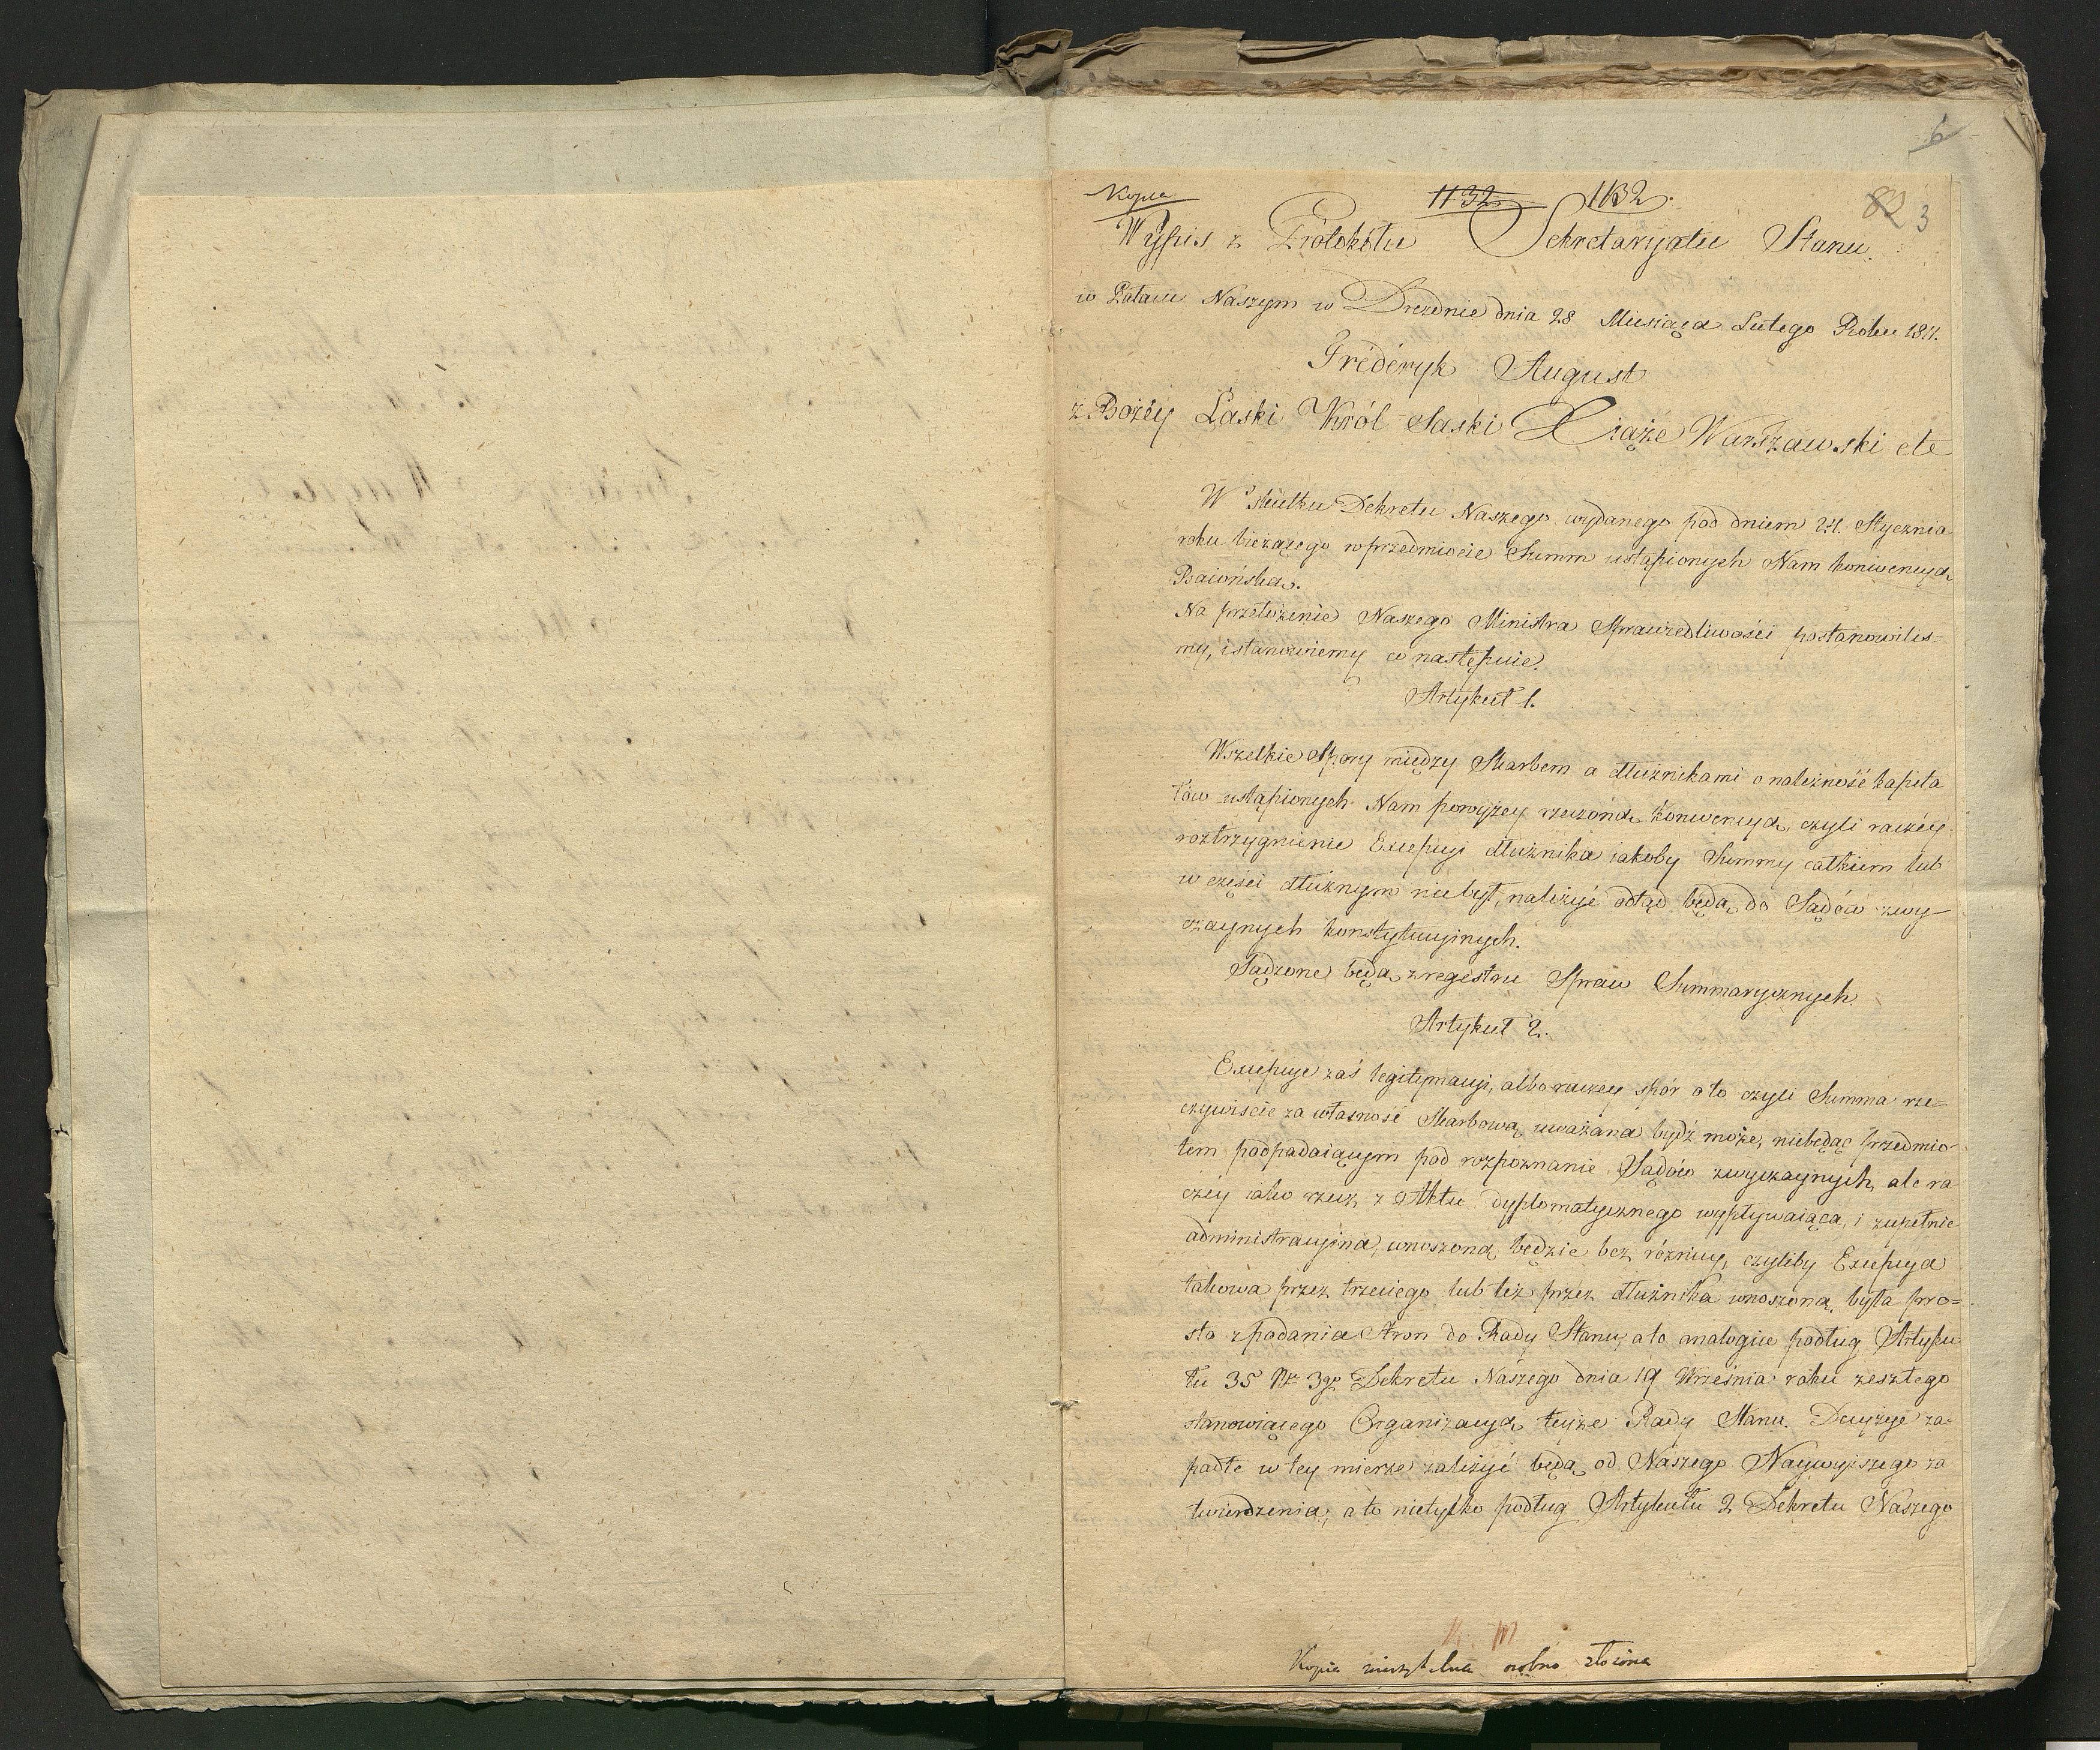 6
Kopia 1132 1132. 82 3
Wypis z Protokółu Sekretaryatu Stanu.
w Pałacu Naszym w Dreźnie dnia 28 Miesiąca Lutego Roku 1811.
Fréderyk August
z Bożéy Łaski Król Saski Xiąże Warszawski etc
W skutku Dekretu Naszego wydanego pod dniem 24. Stycznia
roku bieżącego w przedmiocie Summ ustąpionych Nam konwencyą
Baiońską.
Na przełożenie Naszego Ministra Sprawiedliwości postanowilis=
my, i stanowiemy co następuie.
Artykuł 1.
Wszelkie Spory między Skarbem a dłużnikami o należność kapita
łów ustąpionych Nam powyżey rzeczoną konwencyą, czyli raczéy
roztrzygnienie Excepcyi dłużnika iakoby Summy całkiem lub
w części dłużnym niebył, należyć odtąd będą do Sądów zwy=
czaynych konstytucyinych.
Sądzone będą z regestru Spraw Summarycznych.
Artykuł 2.
Excepcye zaś legitymacyi, albo raczey spór o to czyli Summa rze=
czywiscie za własność Skarbową uważana bydź może, niebędąc przedmio
tem podpadaiącym pod rozpoznanie Sądów zwyczaynych, ale ra
czéy iako rzecz z Aktu dyplomatycznego wypływaiąca, i zupełnie
administracyina, wnoszoną będzie bez różnicy, czyliby Excepcya
takowa przez trzeciego lub też przez dłużnika wnoszoną była pro=
sto z podania stron do Rady Stanu, a to analogice podług Artyku
łu 35 Nr 3go Dekretu Naszego dnia 19 Września roku zeszłego
stanowiącego Organizacyą teyże Rady Stanu. Decyzye za=
padłe w tey mierze zależyć będą od Naszego Naywyższego za
twierdzenia, a to nietylko podług Artykułu 2 Dekretu Naszego
Kopia osobno złożona